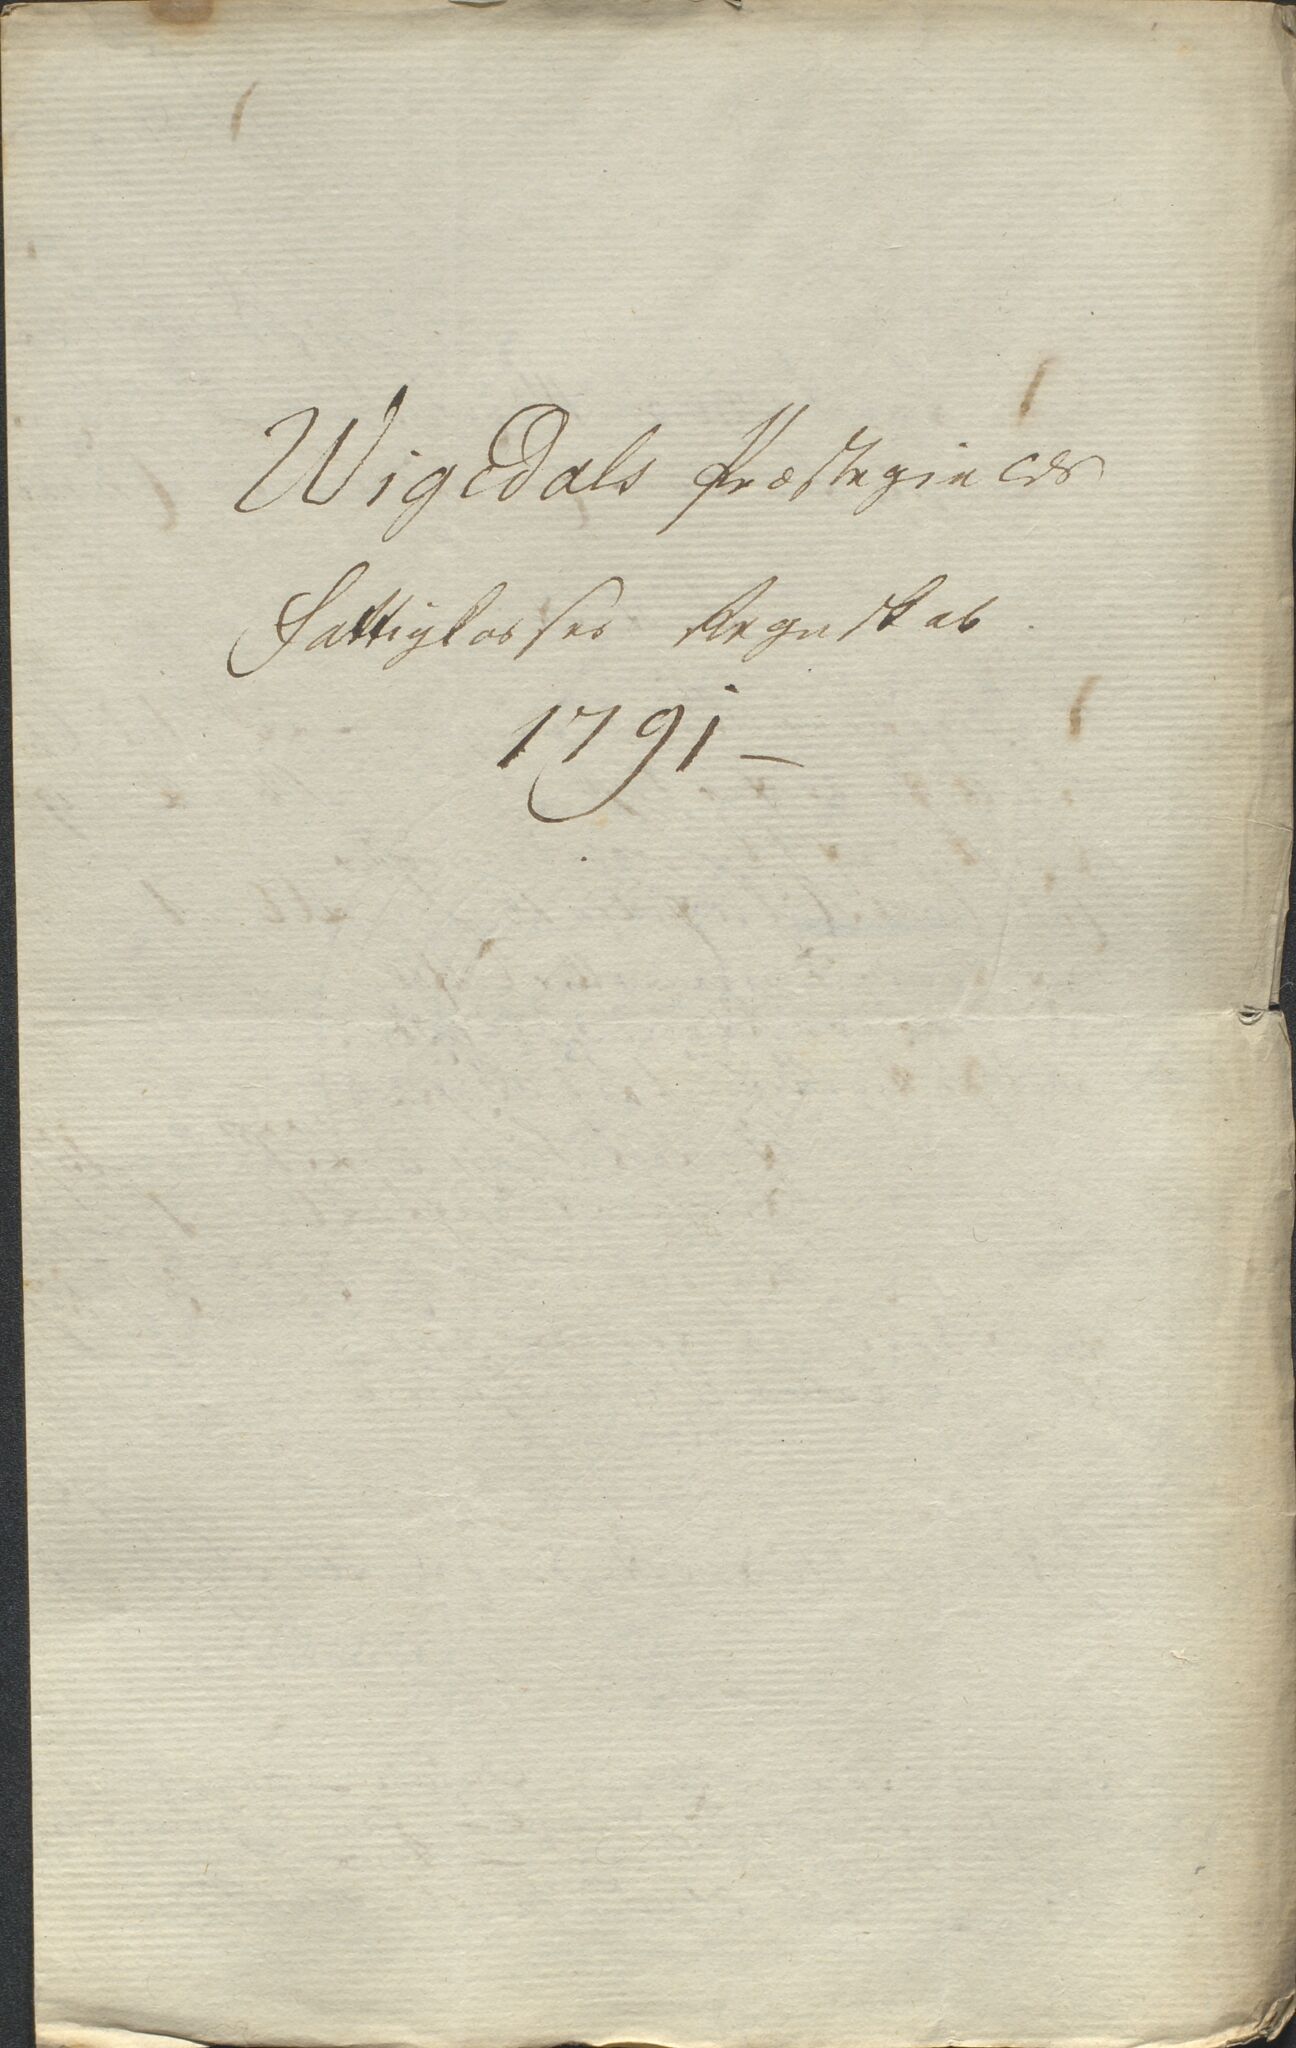 Wigedals Præstegields
Fattigkasses Regnskab
1791